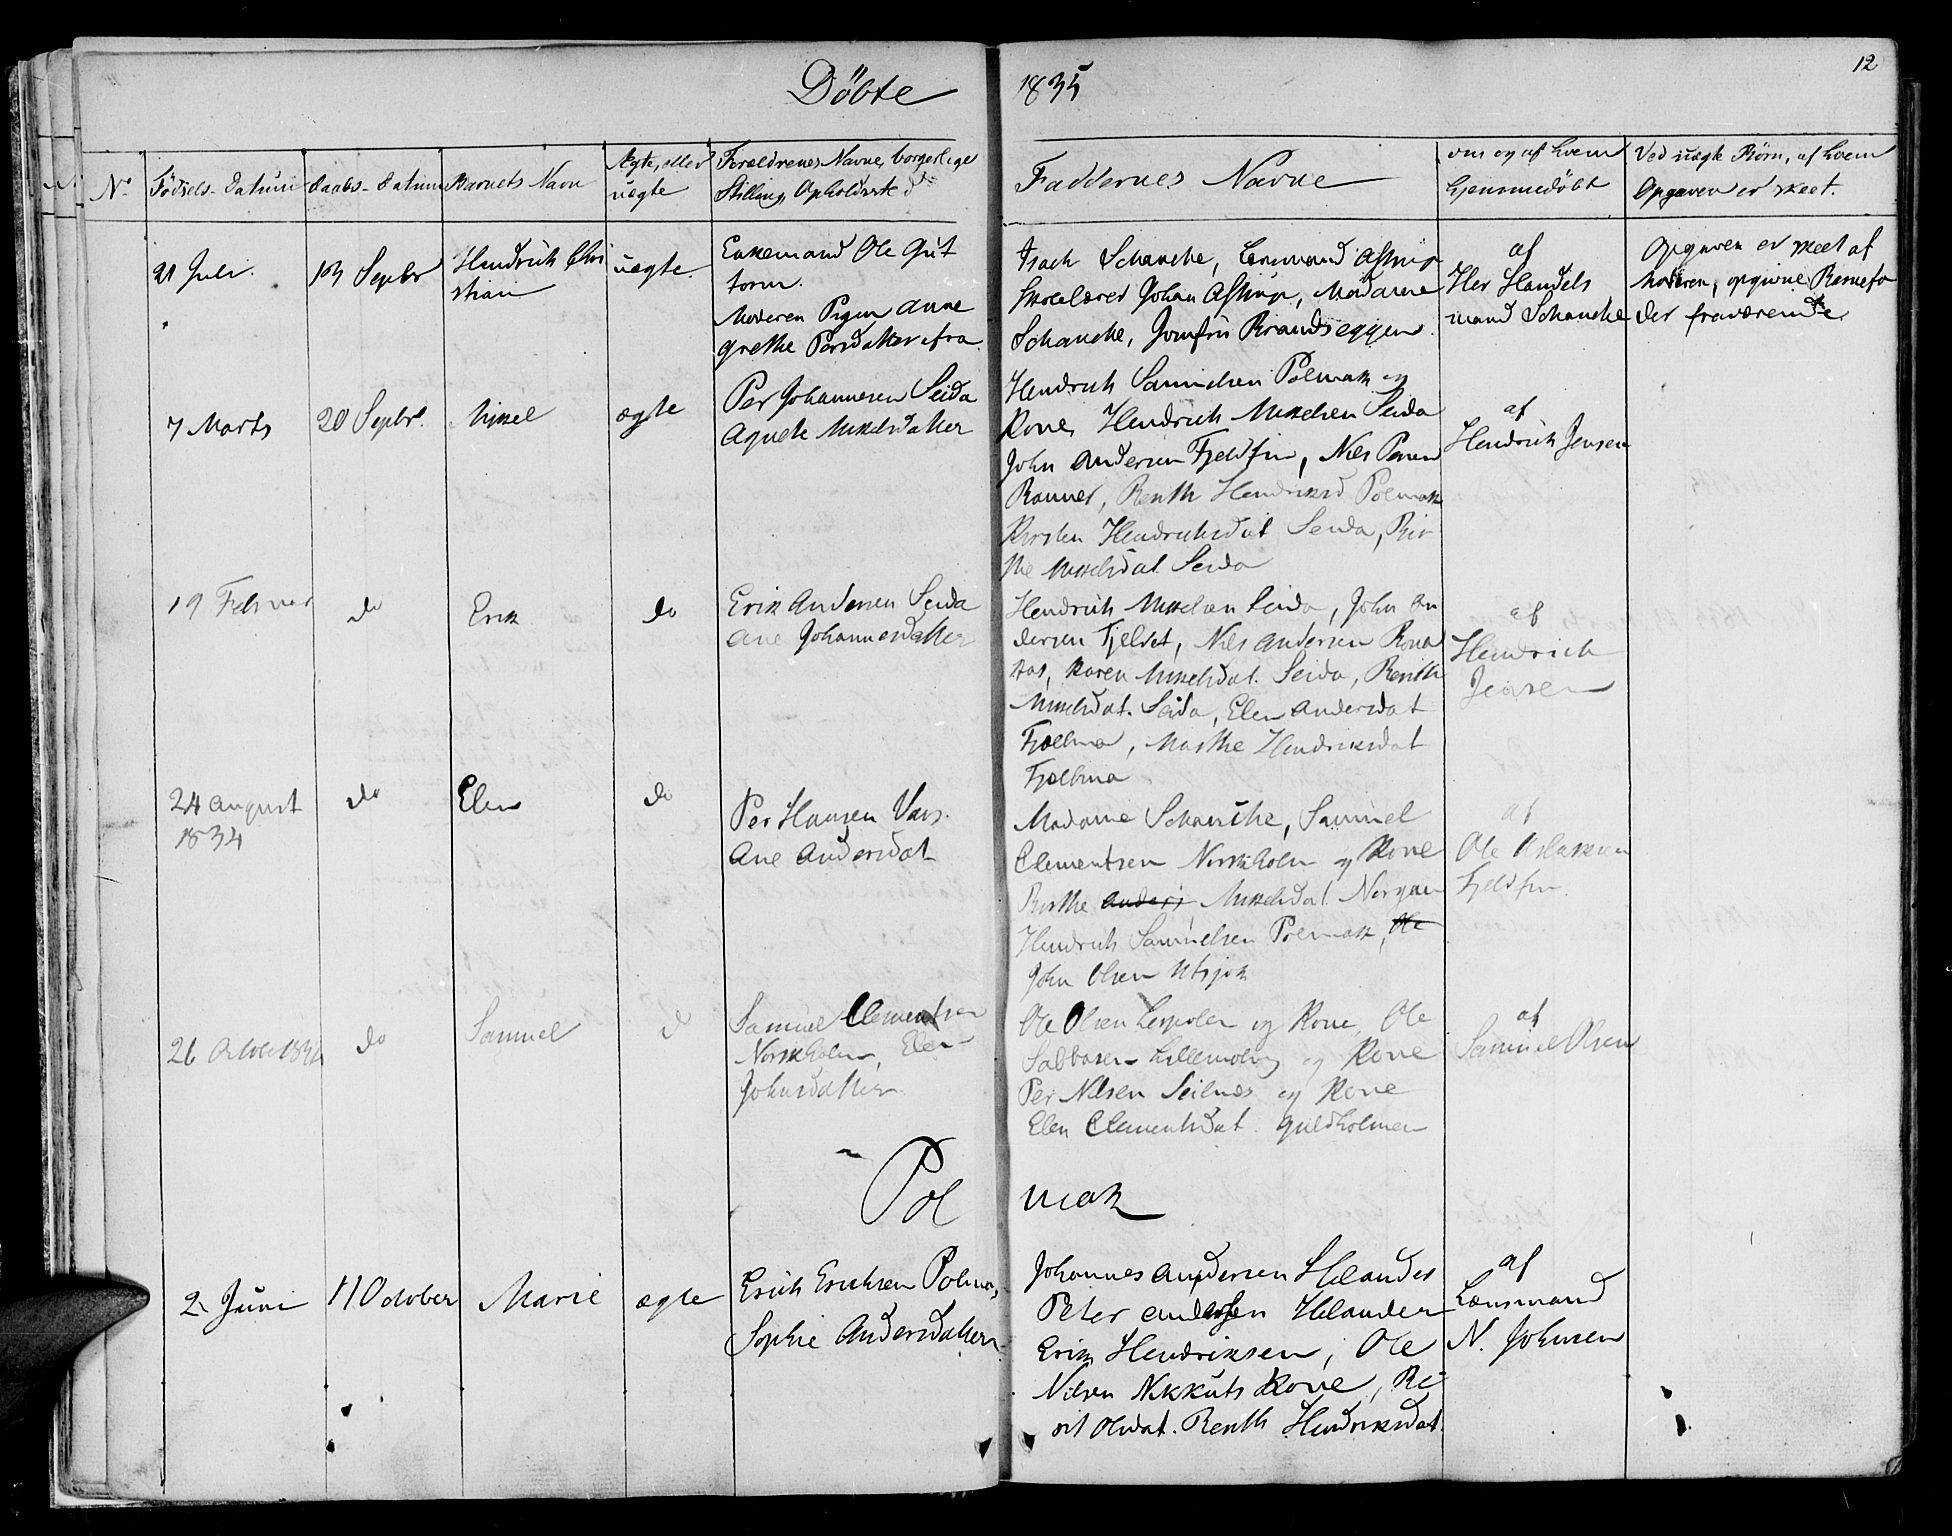 Döbte 1835
12
No
Födsels-Datum
Daabs-Datum
Barnets Navn
Ægte, eller
uægte
Forældrenes Navne, borgerlige
Stilling, Opholdssted
Faddernes Navne
om og af hvem
hjemmedöbt
Ved uægte Börn, af hvem
Opgaven er skeet.
21 Juli.
13 Sepbr
Hendrich Chri
stian
uægte
Enkemand Ole Gut
torm.
Moderen Pigen Anne
Grethe Persdatter ifra
Isach Schanche, Lensmand Astrup
Skolelærer Johan Astrup, Madame
Schanche, Jomfru Brandseggen.
af
Her Handels
mand Schanche
Opgaven er skeet af
Moderen, opgivne Barnefa
der fraværende
7 Marts
20 Sepbr.
Mikkel
ægte
Per Johannesen Seida
Agnete Mikkelsdatter
Hendrich Samuelsen Polmak og
Kone, Hendrich Mikkelsen Seida
John Andersen Fjeldfin, Niels
Berith Hendriksd Polmak
Kirsten Hendrichsdat Seida, Bir
the Mikkelsdat. Seida
af
Hendrich Jensen
19 Februar
do
Erik
do
Erik Andersen Seida
Ane Johannesdatter
Hendrich Mikkelsen Seida, John An
dersen Fjeldet, Niels Andersen
Karen Mikkelsdat. Seida, Berith
Mikkelsdat. Seida, Elen Andersdat
Fjælma, Marthe Hendriksdat
Fjælma
af
Hendrich
Jensen
24 August
1834
do
Elen
do
Per Hansen
Ane Andersdat
Madame Schanche, Samuel
Clementsen Norskholm og Kone
Birthe Anders Mikkelsdat.
Hendrich Samuelsen Polmak, Ole
John Olsen Utsjok
af
Ole
Fjeldfin.
26 Octobr 1834
do
Samuel
do
Samuel Clementsen
Norskholm, Elen
Johnsdatter
Ole Olsen og Kone, Ole
og Kone
Per Nilsen Seilnæs og Kone
Elen Clementsdat. Guldholmen
af
Samuel Olsen
Pol mak
2 Juni
11 October
Marie
ægte
Erich Erichsen Polmak,
Sophie Andersdatter
Johannes Andersen Helander
Peter Andersen Helander
Erik Hendriksen, Ole
Nilsen Kone, Be
rit Olsdat. Berith Hendriksdat.
af
Lænsmand
N. Johnsen